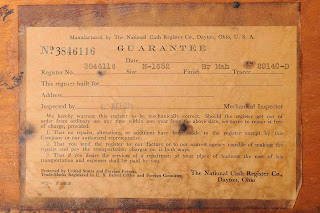 Manufactured by The National Cash Register Co., Dayton, Ohio, U. S. A.
No 3846116 GUARANTEE
Date
3846116 N-1852 Br Mah 20140-D
Register No. Size Finish Tracer
This register built for
Address
Inspected by Mechanical Inspector
We hereby warrant this register to be mechanically correct. Should the register get out of
order from ordinary use any time within one year from the above date, we agree to repair it free
of charge, provided,
1. That no repairs, alteration, or additions have been made to the register except by this
Company or our authorized representative.
2. That you send the register to our factory or to our nearest agency capable of making the
repairs and pay the transportation charges on it both ways.
3. That if you desire the services of a repairman at your place of business, the cost of his
transportation and expenses shall be paid by you.
Protected by United States and Foreign Patents.
Trade-Marks Registered in U. S. Patent Office and Foreign Countries
The National Cash Register Co.,
Dayton, Ohio